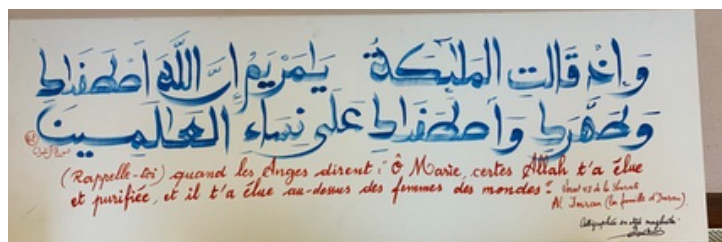 وَإِذْ قَالَتِ المَلَٰئِكَةُ يَٰمَرْيَمُ إِنَّ اللَّهَ اصْطَفَىٰكِ
وَطَهَّرَكِ وَاصْطَفَىٰكِ عَلَىٰ نِسَاءِ العَٰلَمِينَ
(Rappelle-toi) quand les Anges dirent : "Ô Marie, certes Allah t'a élue
et purifiée, et il t'a élue au-dessus des femmes des mondes".
Verset 42 de la Sourate
Al Imran (la famille d'Imran).
Calligraphie en style maghribi